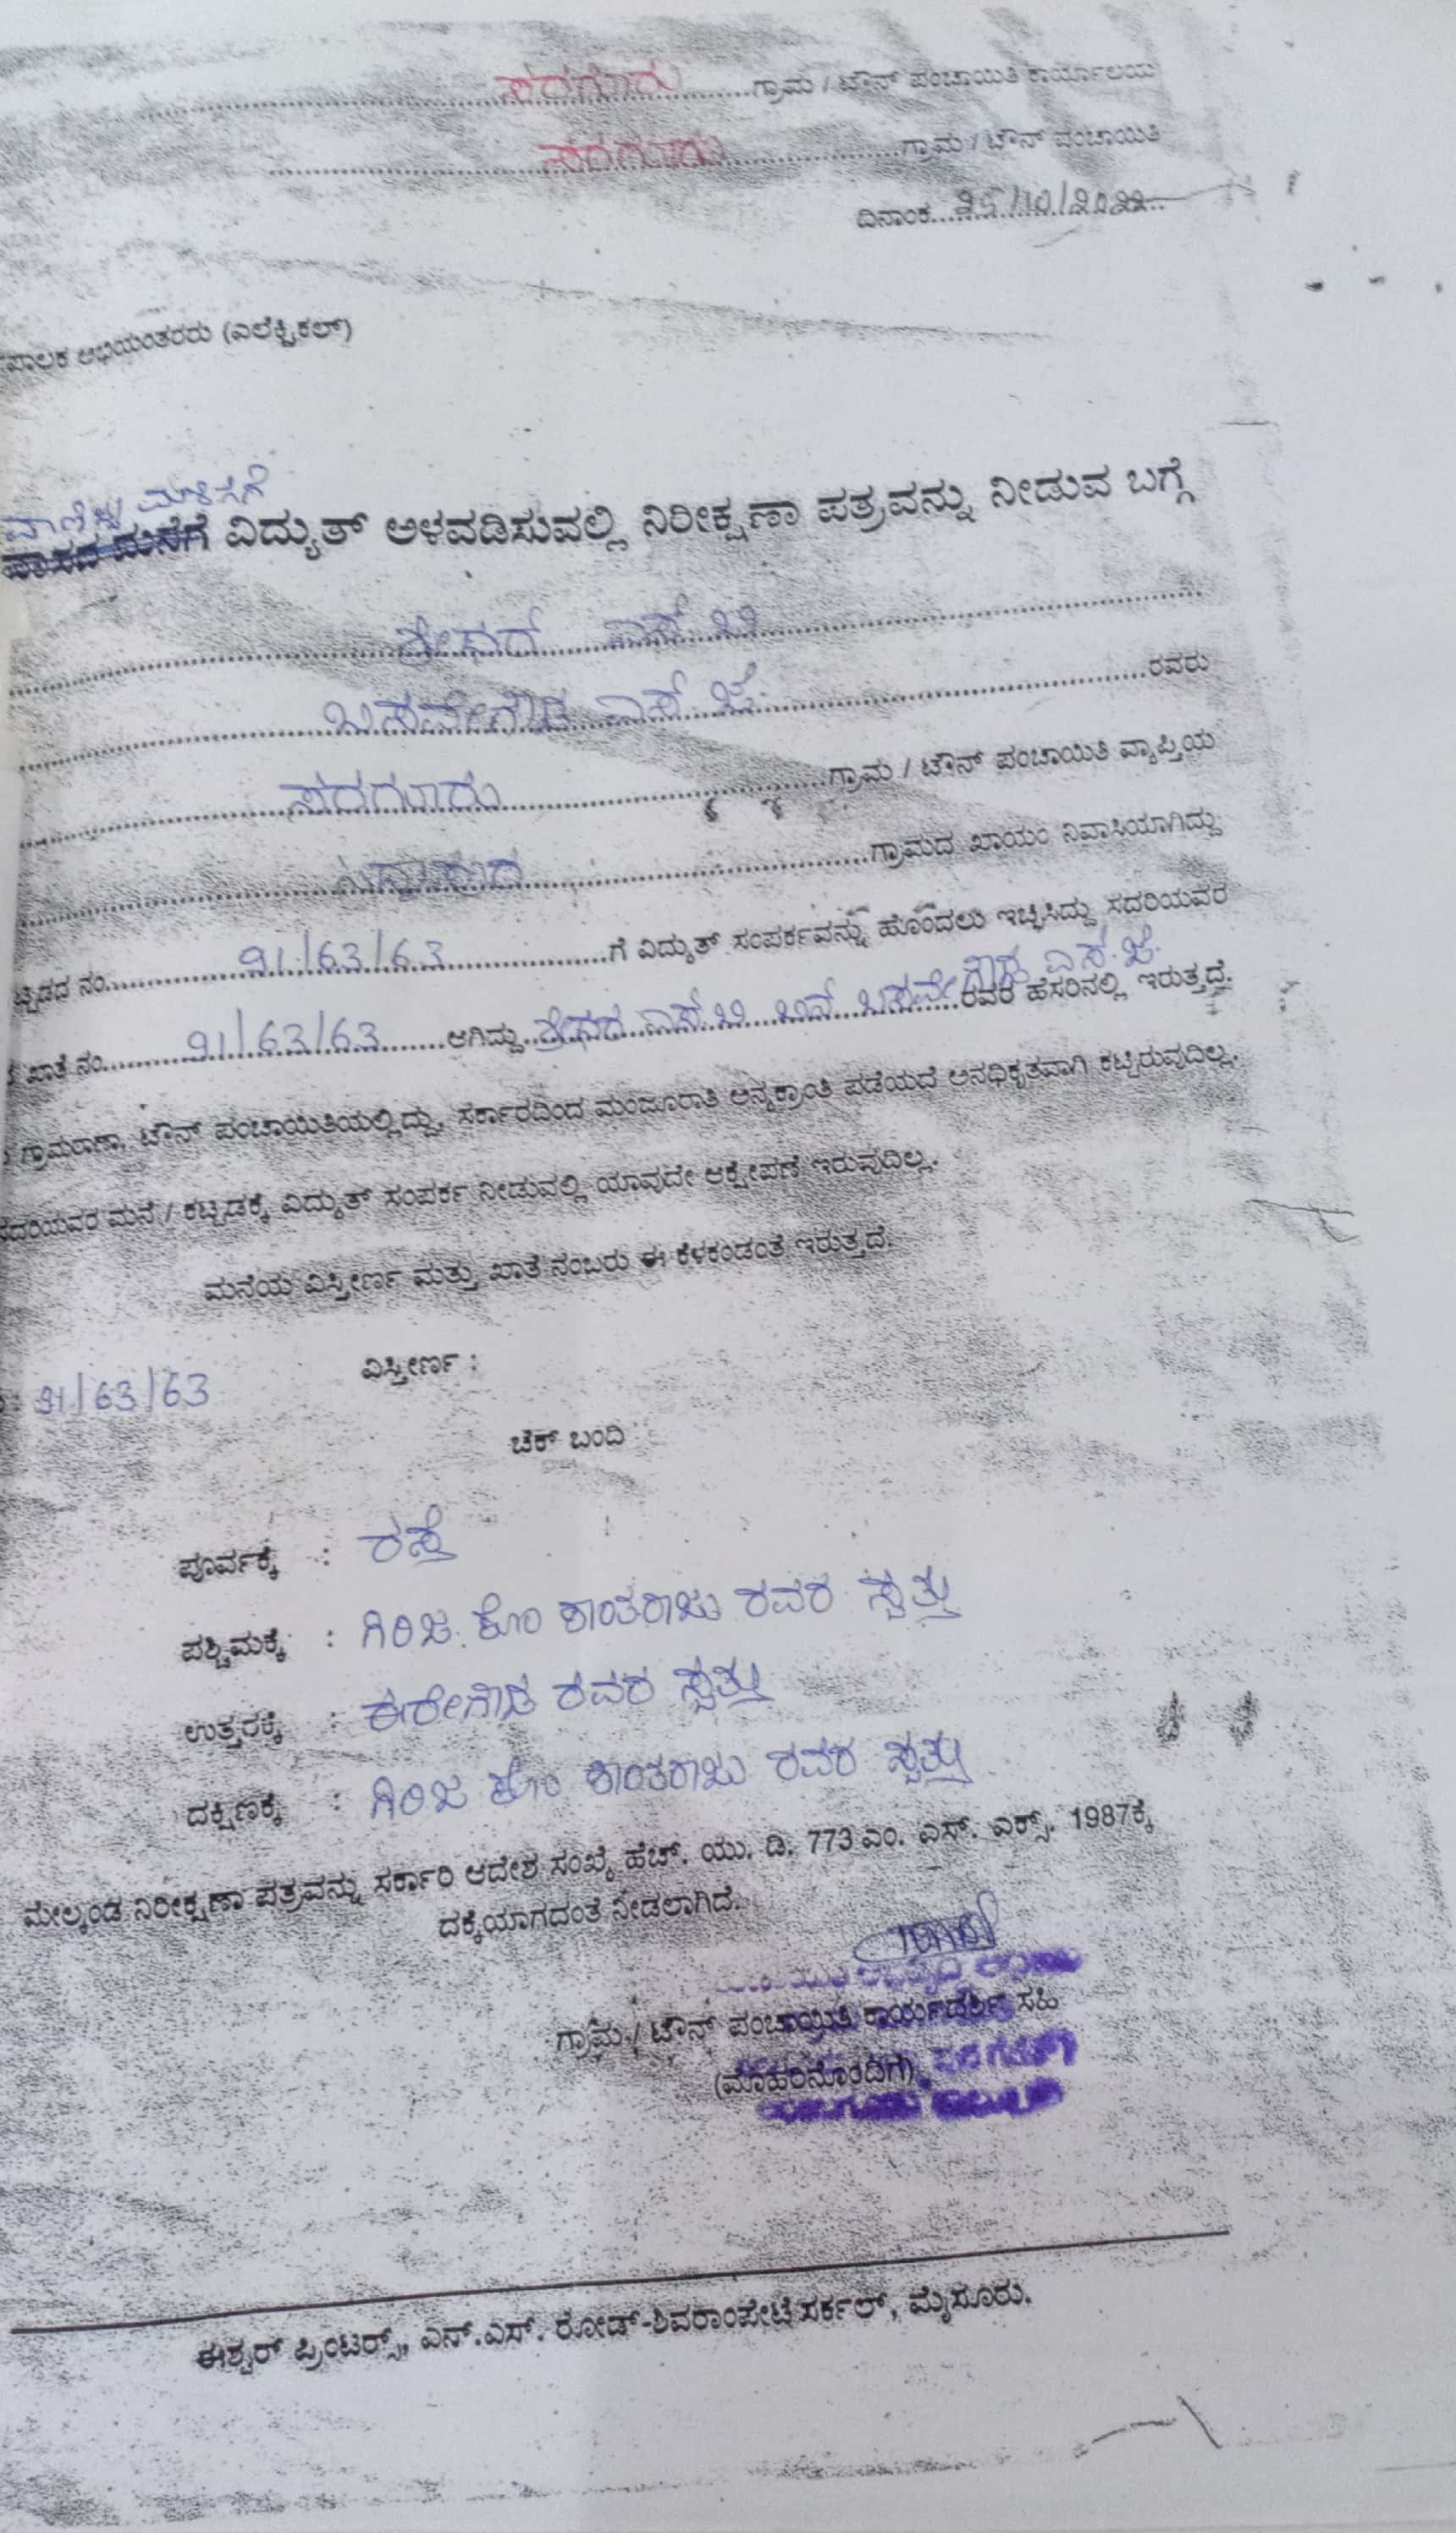 ಸರಗೂರು ಗ್ರಾಮ / ಟೌನ್ ಪಂಚಾಯಿತಿ ಕಾರ್ಯಾಲಯ
ಸರಗೂರು ಗ್ರಾಮ / ಟೌನ್ ಪಂಚಾಯಿತಿ
ದಿನಾಂಕ 25/10/2022
ಪಾಲಕ ಅಭಿಯಂತರರು (ಎಲೆಕ್ಟ್ರಿಕಲ್)
ವಾಣಿಜ್ಯ ಮಳಿಗೆಗೆ
ವಿದ್ಯುತ್ ಅಳವಡಿಸುವಲ್ಲಿ ನಿರೀಕ್ಷಣಾ ಪತ್ರವನ್ನು ನೀಡುವ ಬಗ್ಗೆ
ಶ್ರೀಧರ್ ಎಸ್ ಬಿ
ಬಸವೇಗೌಡ ಎಸ್. ಜೆ. ರವರು
ಸರಗೂರು ಗ್ರಾಮ / ಟೌನ್ ಪಂಚಾಯಿತಿ ವ್ಯಾಪ್ತಿಯ
ಗ್ರಾಮದ ಖಾಯಂ ನಿವಾಸಿಯಾಗಿದ್ದು
ಟ್ಟಡದ ನಂ. 91/63/63 ಗೆ ವಿದ್ಯುತ್ ಸಂಪರ್ಕವನ್ನು ಹೊಂದಲು ಇಚ್ಛಿಸಿದ್ದು ಸದರಿಯವರ
ಖಾತೆ ನಂ. 91/63/63 ಆಗಿದ್ದು ಶ್ರೀಧರ ಎಸ್.ಬಿ ಬಿನ್ ಬಸವೇಗೌಡ ಎಸ್.ಜೆ. ರವರ ಹೆಸರಿನಲ್ಲಿ ಇರುತ್ತದೆ.
ಗ್ರಾಮಠಾಣಾ, ಟೌನ್ ಪಂಚಾಯಿತಿಯಲ್ಲಿದ್ದು, ಸರ್ಕಾರದಿಂದ ಮಂಜೂರಾತಿ ಅನ್ಯಕ್ರಾಂತಿ ಪಡೆಯದೆ ಅನಧಿಕೃತವಾಗಿ ಕಟ್ಟಿರುವುದಿಲ್ಲ.
ಸದರಿಯವರ ಮನೆ / ಕಟ್ಟಡಕ್ಕೆ ವಿದ್ಯುತ್ ಸಂಪರ್ಕ ನೀಡುವಲ್ಲಿ ಯಾವುದೇ ಆಕ್ಷೇಪಣೆ ಇರುವುದಿಲ್ಲ.
ಮನೆಯ ವಿಸ್ತೀರ್ಣ ಮತ್ತು ಖಾತೆ ನಂಬರು ಈ ಕೆಳಕಂಡಂತೆ ಇರುತ್ತದೆ.
: 91/63/63 ವಿಸ್ತೀರ್ಣ :
ಚೆಕ್ ಬಂದಿ
ಪೂರ್ವಕ್ಕೆ : ರಸ್ತೆ
ಪಶ್ಚಿಮಕ್ಕೆ : ಗಿರಿಜ. ಕೋಂ ಶಾಂತರಾಜು ರವರ ಸ್ವತ್ತು
ಉತ್ತರಕ್ಕೆ : ಈರೇಗೌಡ ರವರ ಸ್ವತ್ತು
ದಕ್ಷಿಣಕ್ಕೆ : ಗಿರಿಜ ಕೋಂ ಶಾಂತರಾಜು ರವರ ಸ್ವತ್ತು
ಮೇಲ್ಕಂಡ ನಿರೀಕ್ಷಣಾ ಪತ್ರವನ್ನು ಸರ್ಕಾರಿ ಆದೇಶ ಸಂಖ್ಯೆ ಹೆಚ್. ಯು. ಡಿ. 773 ಎಂ. ಎಸ್. ಎಕ್ಸ್. 1987ಕ್ಕೆ
ದಕ್ಕೆಯಾಗದಂತೆ ನೀಡಲಾಗಿದೆ.
ಗ್ರಾಮ / ಟೌನ್ ಪಂಚಾಯಿತಿ ಕಾರ್ಯದರ್ಶಿ ಸಹಿ
(ಮೊಹರಿನೊಂದಿಗೆ)
ಈಶ್ವರ್ ಪ್ರಿಂಟರ್ಸ್, ಎನ್.ಎಸ್. ರೋಡ್-ಶಿವರಾಂಪೇಟೆ ಸರ್ಕಲ್, ಮೈಸೂರು.